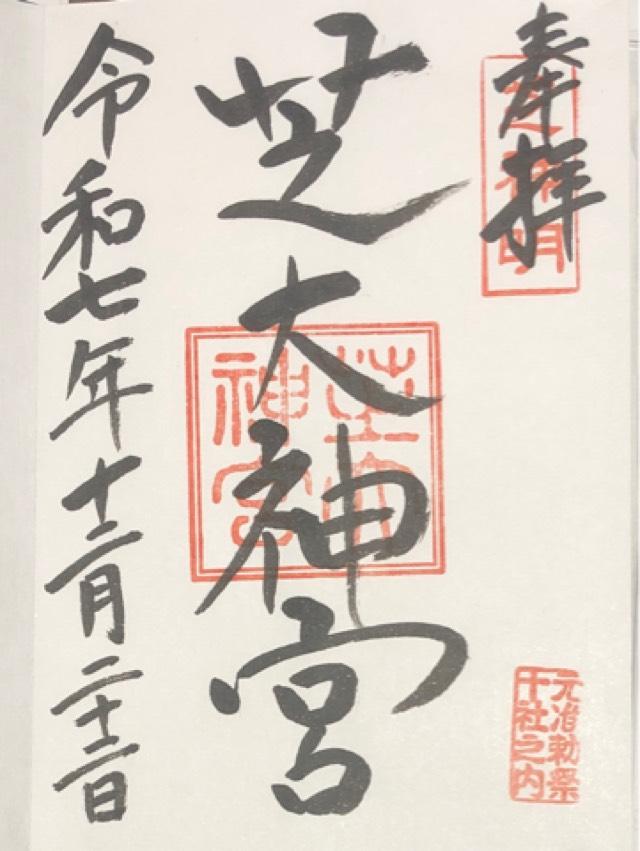 奉拝
芝神明
元准勅祭
十社之内
芝大神宮
芝大
神宮
令和七年十二月二十二日